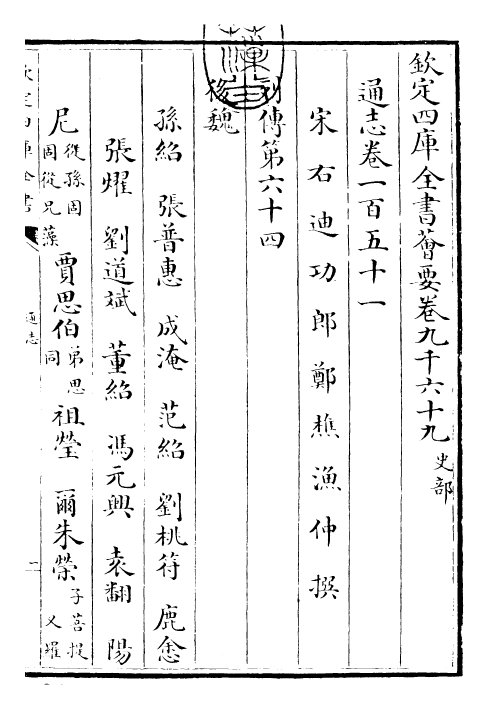 欽定四庫全書薈要卷九千六十九 史部
通志卷一百五十一
宋右迪功郎鄭樵漁仲撰
列傳第六十四
後魏
孫紹 張普惠 成淹 范紹 劉桃符 鹿悆
張燿 劉道斌 董紹 馮元興 袁翻 陽
尼 從孫固 固從兄藻 賈思伯 弟思同 祖瑩 爾朱榮 子菩提
欽定四庫全書
通志
一